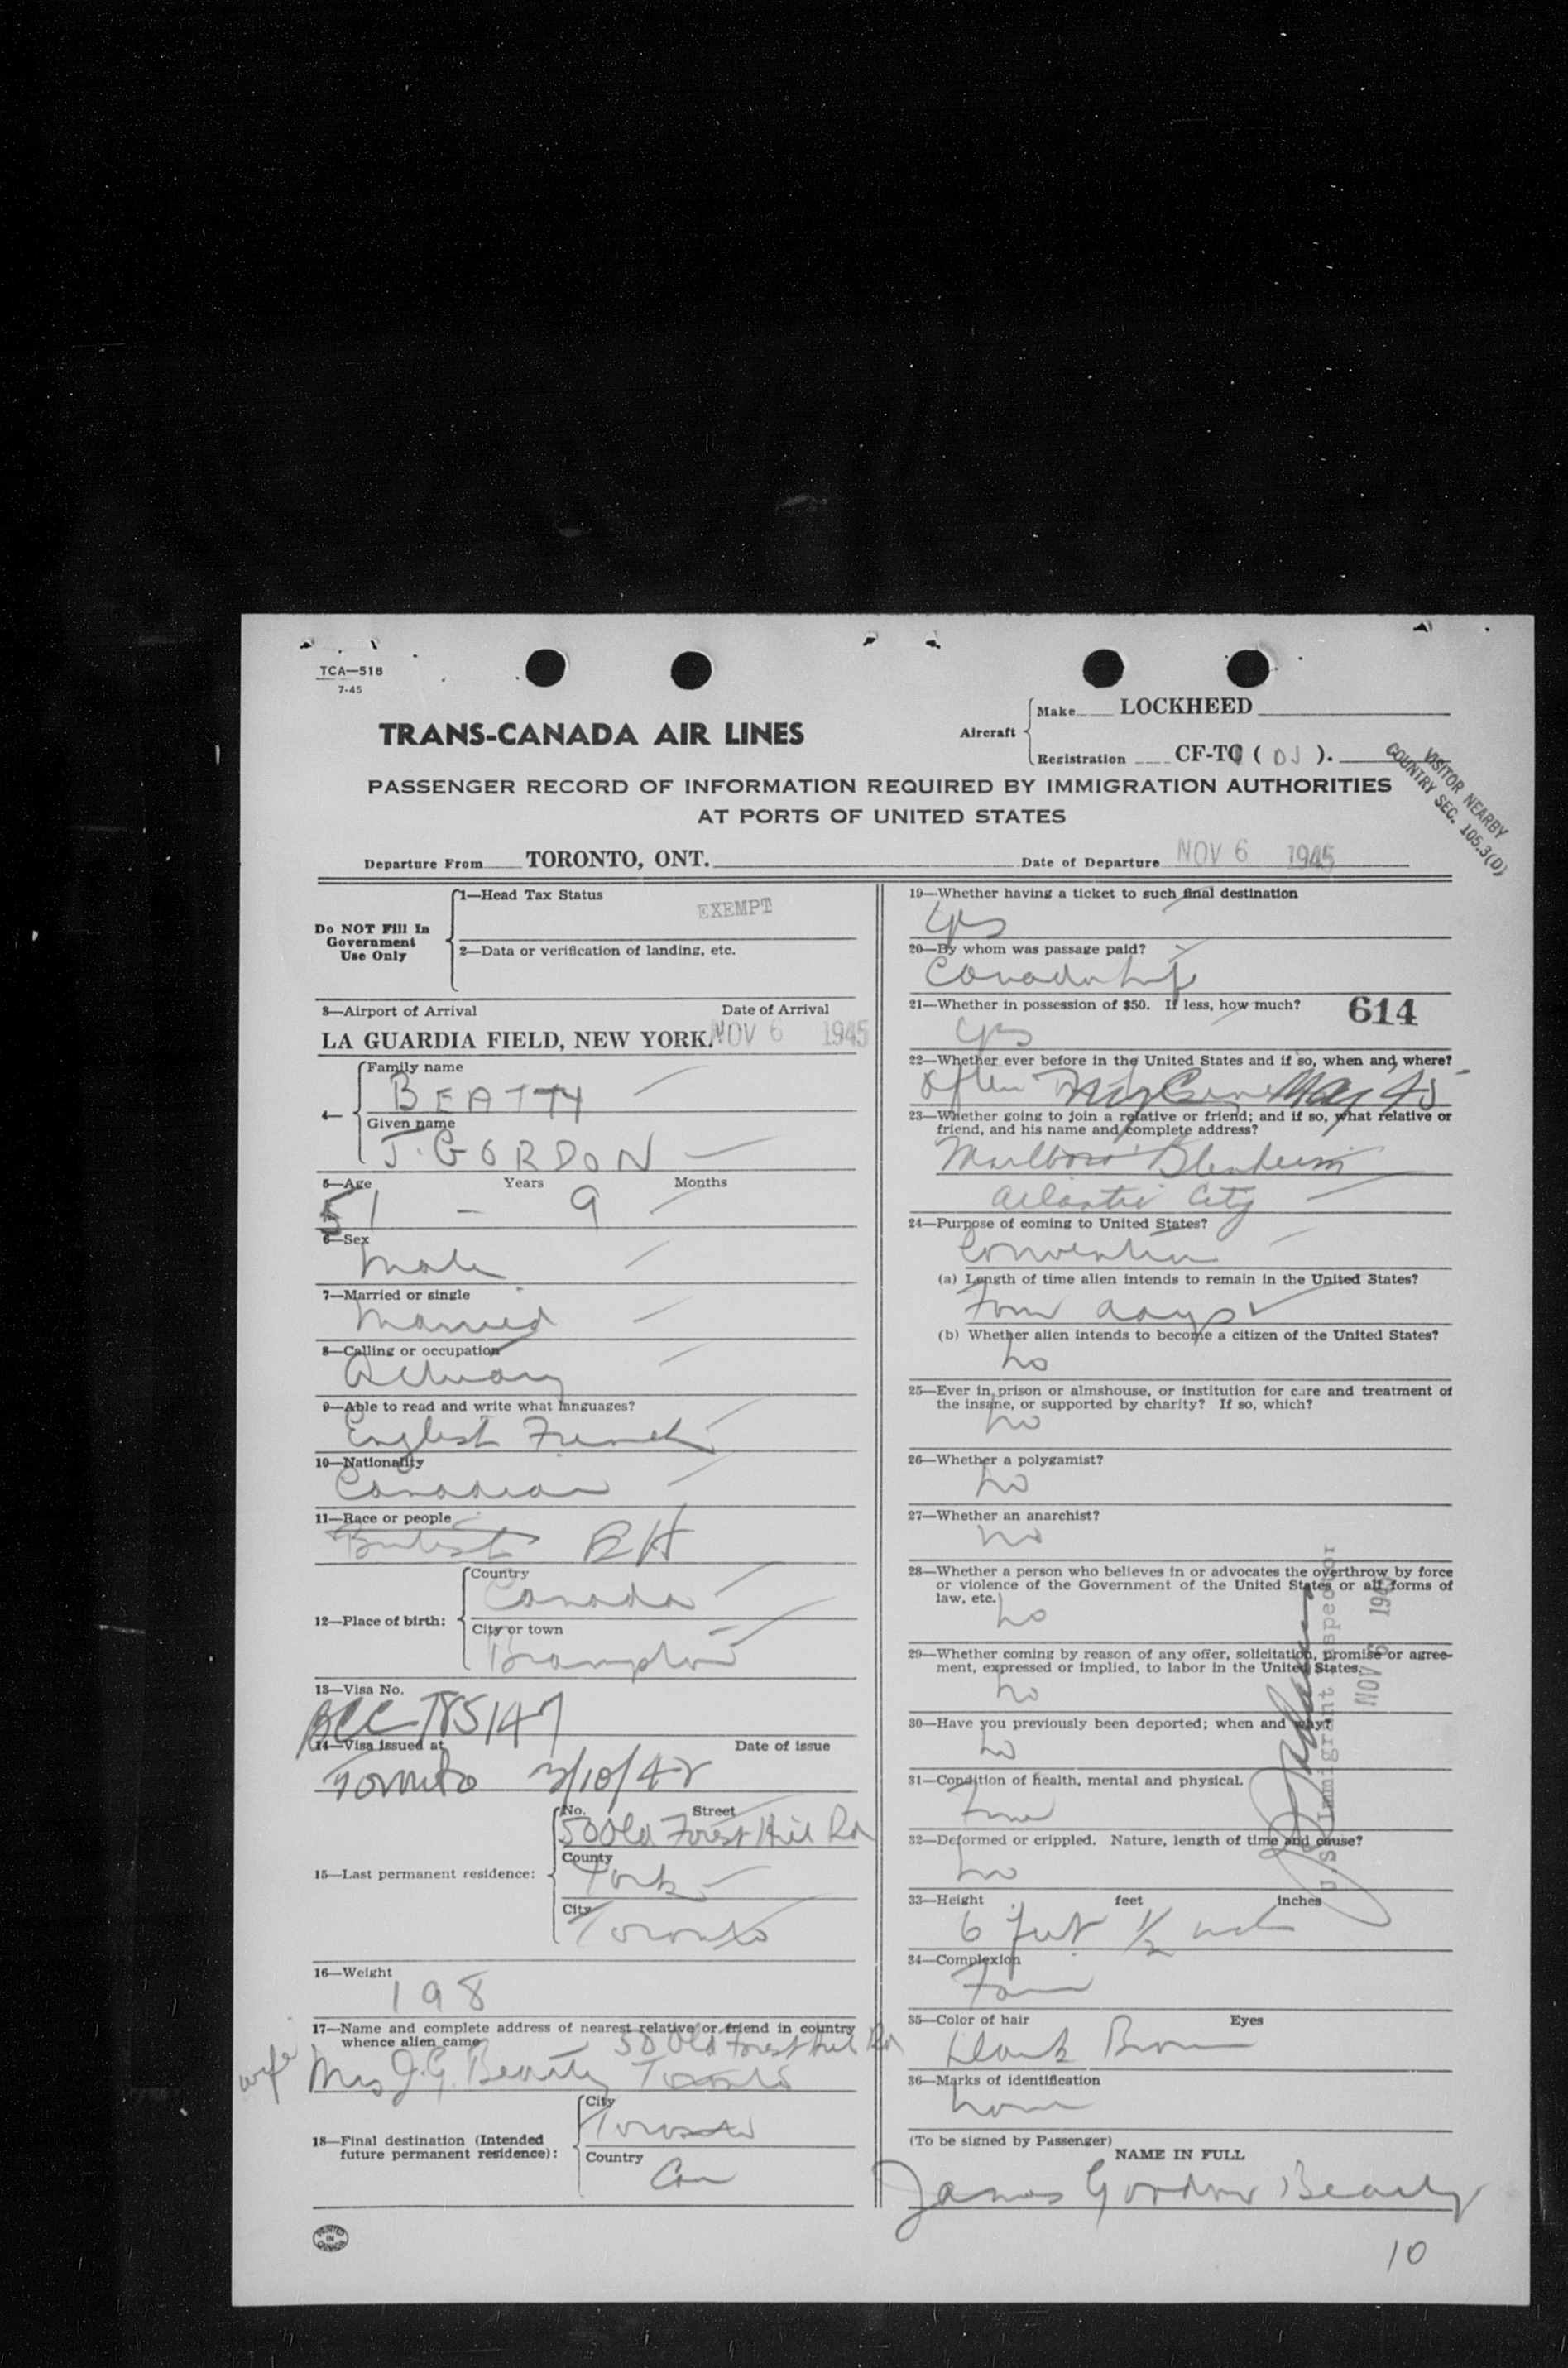 TCA—518
7-45
TRANS-CANADA AIR LINES
Aircraft
Make LOCKHEED
Registration CF-TC ( DJ ).
VISITOR NEARBY
COUNTRY SEC. 105.3(D)
PASSENGER RECORD OF INFORMATION REQUIRED BY IMMIGRATION AUTHORITIES
AT PORTS OF UNITED STATES
Departure From TORONTO, ONT.
Date of Departure NOV 6 1945
Do NOT Fill In
Government
Use Only
1—Head Tax Status
EXEMPT
2—Data or verification of landing, etc.
3—Airport of Arrival Date of Arrival
LA GUARDIA FIELD, NEW YORK. NOV 6 1945
4—
Family name
BEATTY
Given name
J. GORDON
5—Age Years Months
51 - 9
6—Sex
Male
7—Married or single
Married
8—Calling or occupation
Actuary
9—Able to read and write what languages?
English French
10—Nationality
Canadian
11—Race or people
British
12—Place of birth:
Country
Canada
City or town
Brampton
13—Visa No.
BCC 785147
14—Visa issued at Date of issue
Toronto /10/42
15—Last permanent residence:
No. Street
50 Old Forest Hill Rd
County
York
City
Toronto
16—Weight
198
17—Name and complete address of nearest relative or friend in country
whence alien came
50 Old Forest Hill Rd
wife Mrs J.G. Beatty Toronto
18—Final destination (Intended
future permanent residence):
City
Toronto
Country
Can
19—Whether having a ticket to such final destination
Yes
20—By whom was passage paid?
Canada Life
21—Whether in possession of $50. If less, how much?
614
Yes
22—Whether ever before in the United States and if so, when and where?
Often NYC May 45
23—Whether going to join a relative or friend; and if so, what relative or
friend, and his name and complete address?
Marlboro Blenheim
Atlantic City
24—Purpose of coming to United States?
Convention
(a) Length of time alien intends to remain in the United States?
Four days
(b) Whether alien intends to become a citizen of the United States?
No
25—Ever in prison or almshouse, or institution for care and treatment of
the insane, or supported by charity? If so, which?
No
26—Whether a polygamist?
No
27—Whether an anarchist?
No
28—Whether a person who believes in or advocates the overthrow by force
or violence of the Government of the United States or all forms of
law, etc.
No
29—Whether coming by reason of any offer, solicitation, promise or agree-
ment, expressed or implied, to labor in the United States.
No
30—Have you previously been deported; when and why?
No
31—Condition of health, mental and physical.
Fine
32—Deformed or crippled. Nature, length of time and cause?
No
U.S. Immigrant Inspector
NOV 6 194
33—Height feet inches
6 feet 1/2 inch
34—Complexion
35—Color of hair Eyes
Dark Brown
36—Marks of identification
None
(To be signed by Passenger)
NAME IN FULL
James Gordon Beatty
PRINTED IN CANADA
10